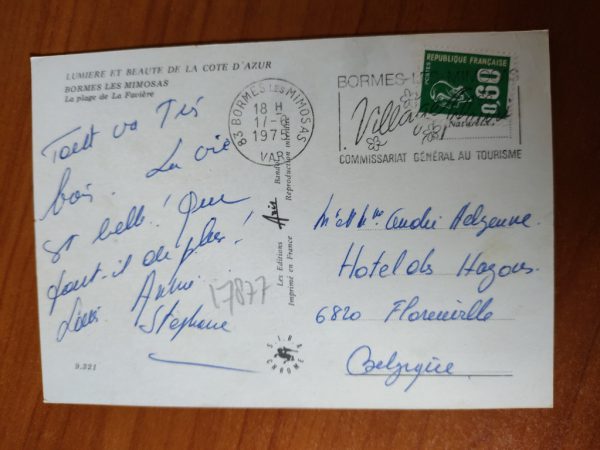 LUMIERE ET BEAUTE DE LA COTE D'AZUR
BORMES LES MIMOSAS
La plage de La Favière
Tout va Très
bien. La vie
est belle! Que
faut-il de plus!
Annie
Stephane
17877
9.321
83 BORMES LES MIMOSAS
18 H
VAR
BORMES-LE
Villa
COMMISSARIAT GÉNÉRAL AU TOURISME
REPUBLIQUE FRANÇAISE
POSTES
0,60
Les Editions Aris
Imprimé en France
Reproduction interdite
André
Hotel des
6820 Florenville
Belgique